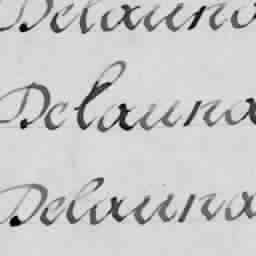 Delauna
Delauna
Delauna